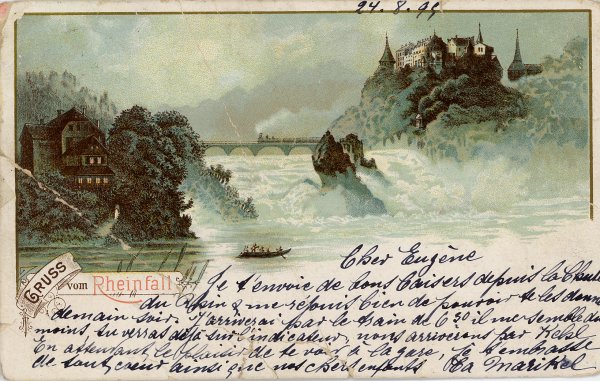 24. 8. 99
GRUSS
vom Rheinfall
Cher Eugène
Je t'envoie de bons baisers depuis la Chute
du Rhin & me réjouis bien de pouvoir te les donner
demain soir. J'arriverai par le train de 6 30 il me semble du
moins tu verras déjà sur l'indicateur, nous arriverons par Kehl
En attendant le plaisir de te voir à la gare, je t'embrasse
de tout cœur ainsi que nos chers enfants Ta